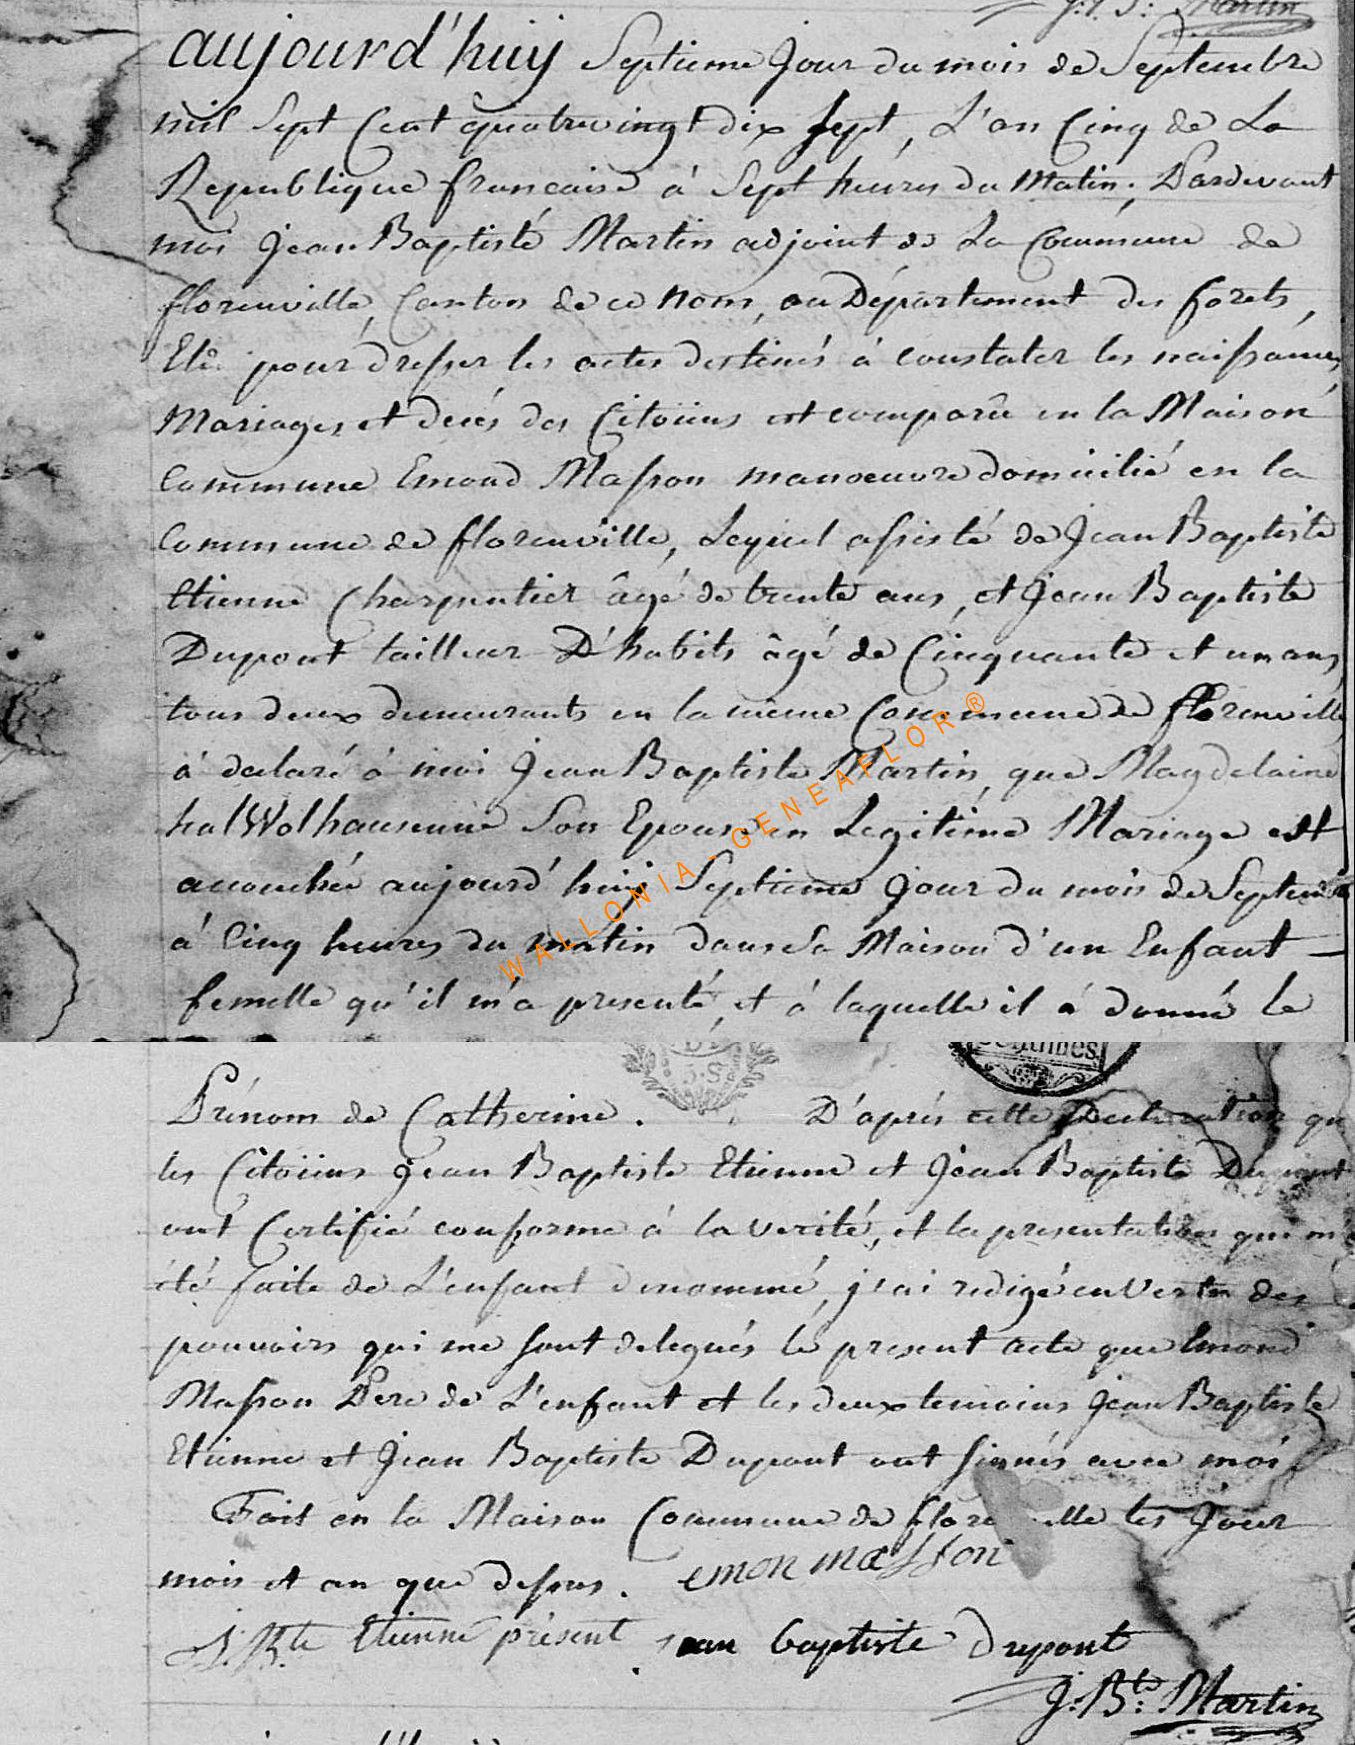 J: B: Martin
aujourd'huij Septieme Jour du mois de Septembre
mil Sept Cent quatrevingt dix Sept, L'an Cinq de La
Republique francaise à Sept heures du Matin, Pardevant
moi Jean Baptiste Martin adjoint de La Commune de
florenville, Canton de ce Nom, au Département des forets,
Elû pour dresser les actes destinés à constater les naissances,
Mariages, et decés des Citoiens est comparû en la Maison
Commune Emond Masson manoeuvre domicilié en la
Commune de florenville, Lequel assisté de Jean Baptiste
Etienne Charpentier âgé de trente ans, et Jean Baptiste
Dupont tailleur D'habits âgé de Cinquante et un ans,
tous deux demeurants en la même Commune de florenville
à declaré à moi Jean Baptiste Martin, que Magdelaine
halWolhausenne Son Epouse en Legitime Mariage est
accouchée aujourd'huij Septieme Jour du mois de Septembre
à Cinq heures du matin dans Sa Maison d'un Enfant
femelle qu'il m'a presenté, et à laquelle il à donné le
WALLONIA - GENEAFLOR ®
Prénom de Catherine. D'aprés cette Declaration que
les Citoiens Jean Baptiste Etienne et Jean Baptiste Dupont
ont Certifié conforme à la verité, et la presentation qui m'a
été faite de L'enfant denommé, j'ai redigé en Vertu des
pouvoirs qui me sont delegués le present acte que Emond
Masson Pere de L'enfant et les deux temoins Jean Baptiste
Etienne et Jean Baptiste Dupont ont signés avec moi
Fait en la Maison Commune de florenville les Jour
mois et an que dessus. emon masson
J. Bte Etienne présent jean baptiste dupont
J: Bte: Martin